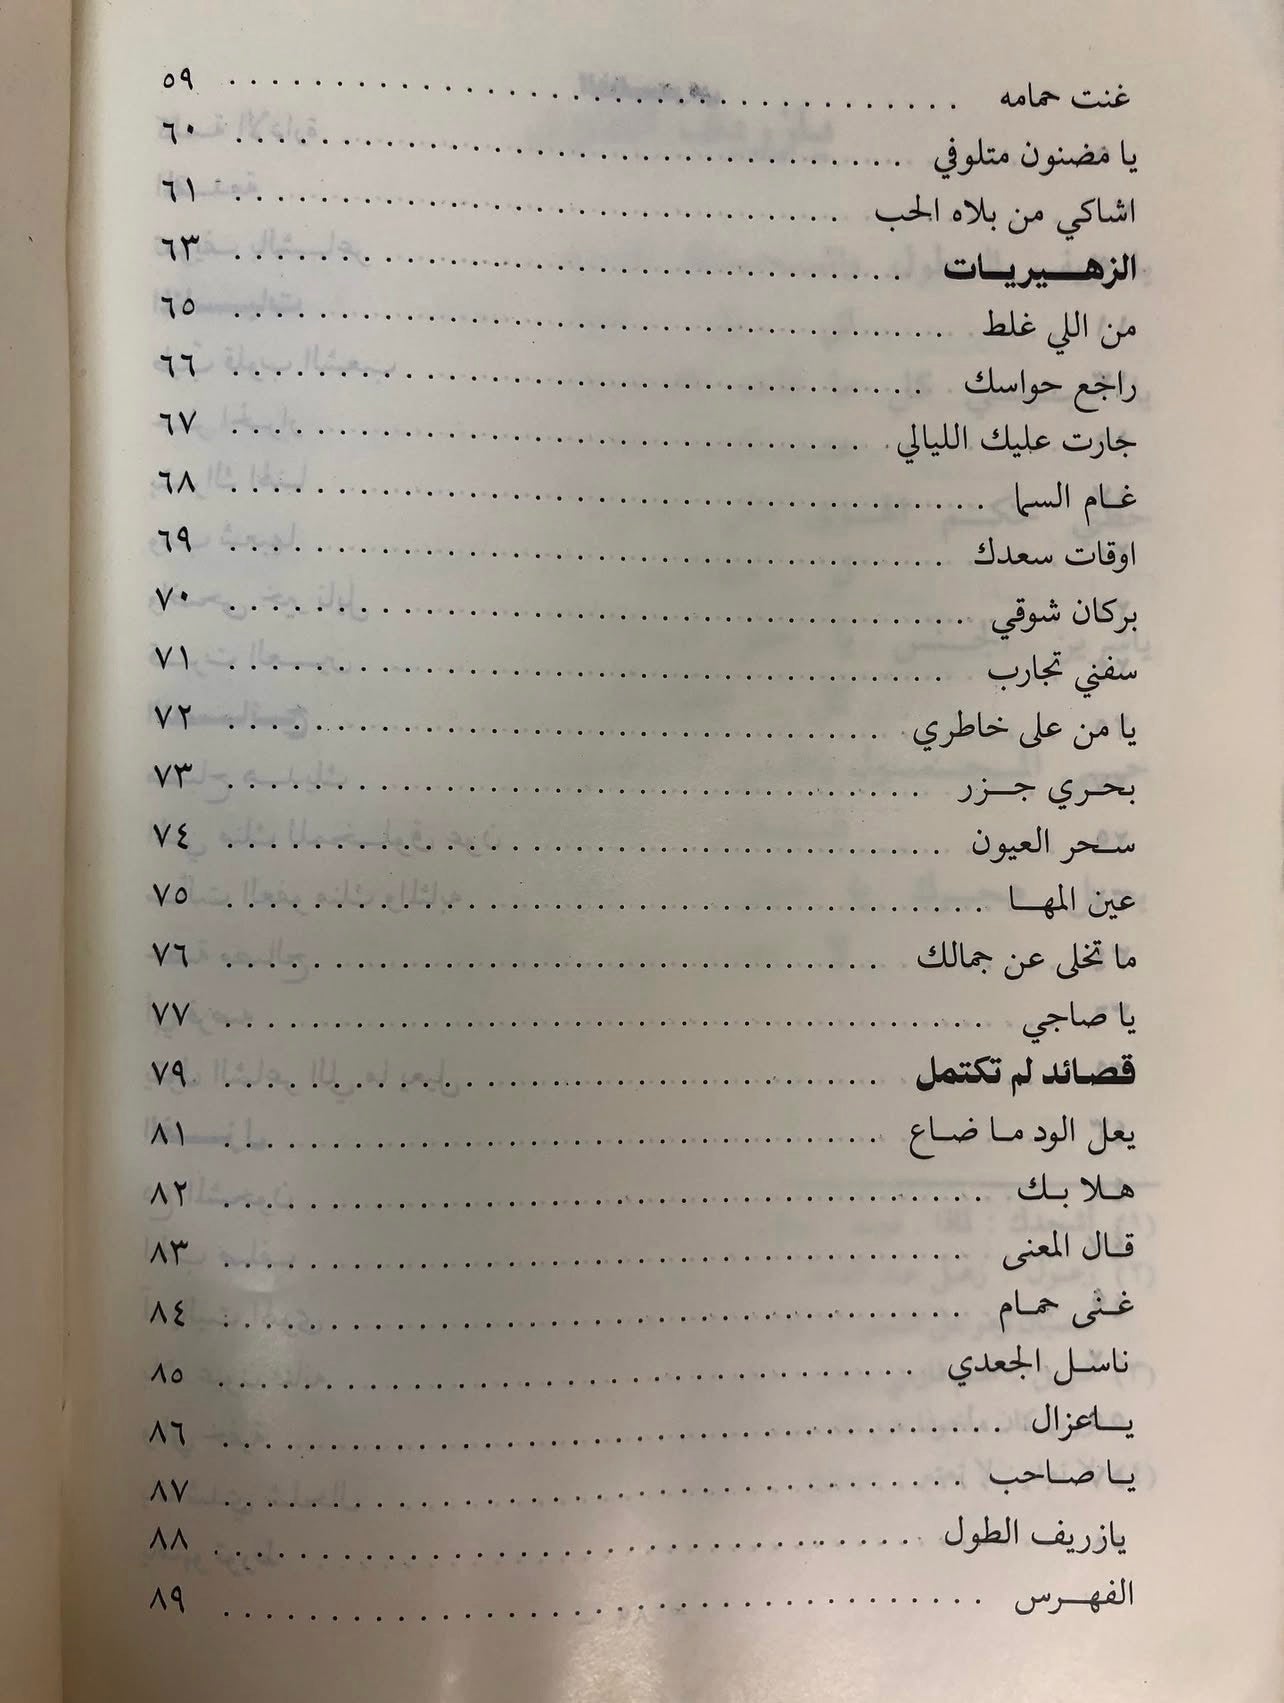 غنت حمامه ٥٩
يا مضنون متلوفي ٦٠
اشاكي من بلاه الحب ٦١
الزهيريات ٦٣
من اللي غلط ٦٥
راجع حواسك ٦٦
جارت عليك الليالي ٦٧
غام السما ٦٨
اوقات سعدك ٦٩
بركان شوقي ٧٠
سفني تجارب ٧١
يا من على خاطري ٧٢
بحري جزر ٧٣
سحر العيون ٧٤
عين المها ٧٥
ما تخلى عن جمالك ٧٦
يا صاجي ٧٧
قصائد لم تكتمل ٧٩
يعل الود ما ضاع ٨١
هلا بك ٨٢
قال المعنى ٨٣
غنى حمام ٨٤
ناسل الجعدي ٨٥
ياعزال ٨٦
يا صاحب ٨٧
يازريف الطول ٨٨
الفهرس ٨٩